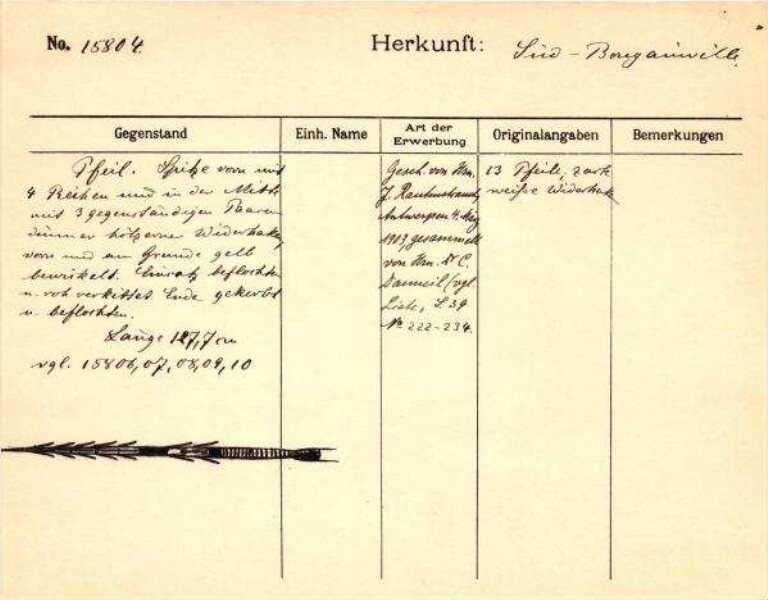 No. 15804. Herkunft: Süd-Bougainville
Gegenstand Einh. Name Art der Erwerbung Originalangaben Bemerkungen
Pfeil. Spitze vorn mit
4 Reihen und in der Mitte
mit 3 gegenständigen Paaren
dünner hölzerner Widerhaken,
vorn und am Grunde gelb
bewickelt. Einsatz beflochten
u. rot verkittet Ende gekerbt
u. beflochten.
Länge 127,7 cm
vgl. 15806,07,08,09,10
Gesch. von Hrn.
J. Rautenstrauch,
Antwerpen 4. Mai
1903, gesammelt
von Hrn. Dr C.
Danneil (vgl.
Liste, S. 39
No 222-234.
13 Pfeile, zarte
weiße Widerhaken